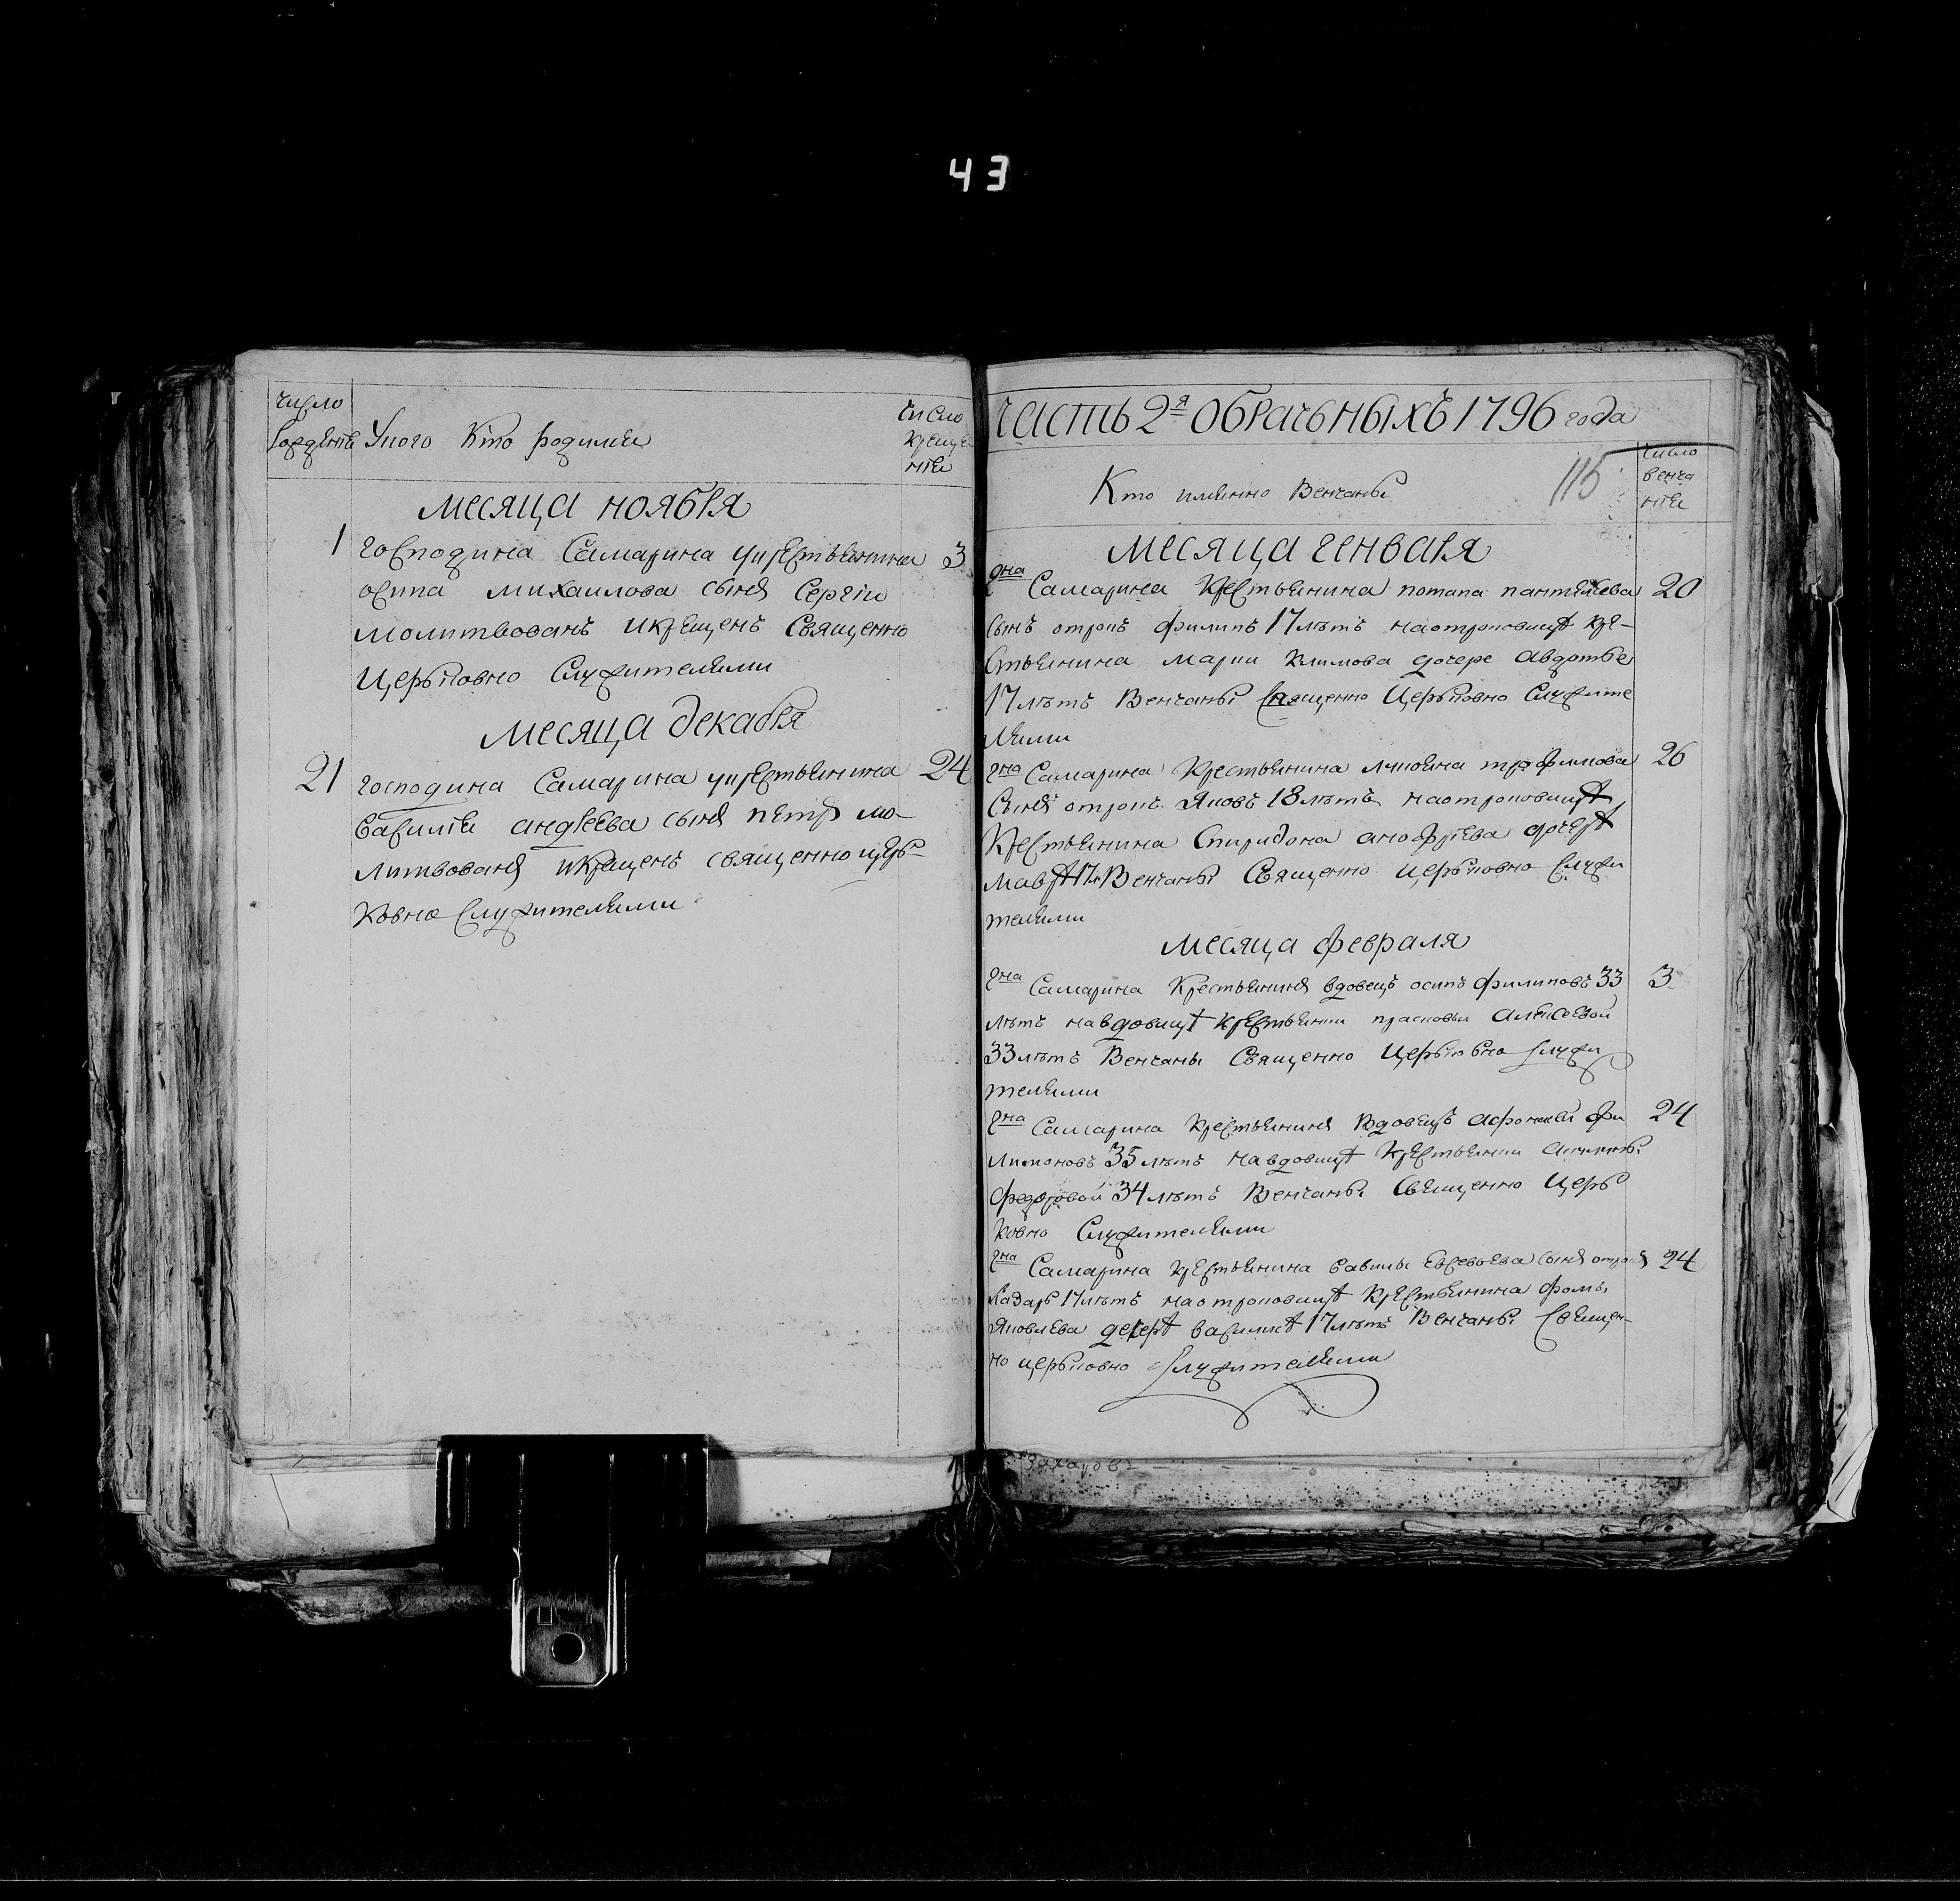 43
число рождения
У кого кто родился
число крещения
месяца ноября
1 господина Самарина у крестьянина 3
осипа михаилова сынъ Сергiи
молитвованъ и крещенъ Священно
Церьковно Служителями
месяца декабря
21 господина Самарина у крестьянина 24
василiя андреева сынъ петръ мо-
литвованъ и крещенъ священно церь-
ковно Служителями
часть 2я о брачныхъ 1796 года
Кто имянно Венчаны
115
число венчания
месяца генваря
гна Самарина крестьянина потапа пантелеева 20
сынъ отрокъ филипъ 17 летъ на отроковице кре-
стьянина марки климова дочере авдотье
17 летъ Венчаны священно Церьковно Служите
лями
гна Самарина крестьянина лукияна трофимова 26
Сынъ отрокъ Яковъ 18 летъ на отроковице
Крестьянина Спиридона анофриева дочере
мавре 17 л Венчаны Священно церьковно Служи
телями
месяца февраля
гна Самарина Крестьянинъ вдовецъ осипъ филиповъ 33 3
летъ на вдовице крестьянки прасковьи алексеевой
33 летъ Венчаны Священно Церьковно служи
телями
гна Самарина Крестьянинъ Вдовецъ афонасей фи 24
лимоновъ 35 летъ на вдовице Крестьянки акилины
федотовой 34 летъ Венчаны Священно Церь
ковно Служителями
гна Самарина крестьянина вавилы евсевьева сынъ отрокъ 24
17 летъ на отроковице Крестьянина фомы
Яковлева дочере василисе 17 летъ Венчаны Священ-
но церьковно Служителями
Захаровъ